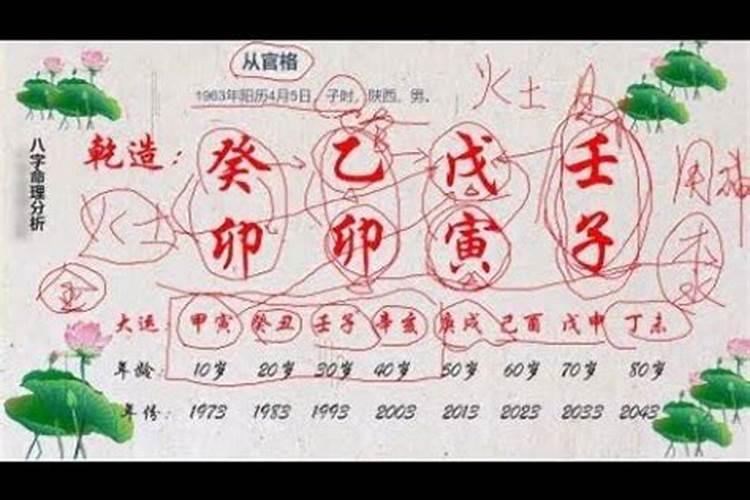 从官格
1963年阳历4月5日，子时，陕西，男。
火土
八字命理分析
乾造：癸 乙 戊 壬
卯 卯 寅 子
用神
火土
木
大运：甲寅 癸丑 壬子 辛亥 庚戌 己酉 戊申 丁未
年龄：10岁 20岁 30岁 40岁 50岁 60岁 70岁 80岁
年份：1973 1983 1993 2003 2013 2023 2033 2043